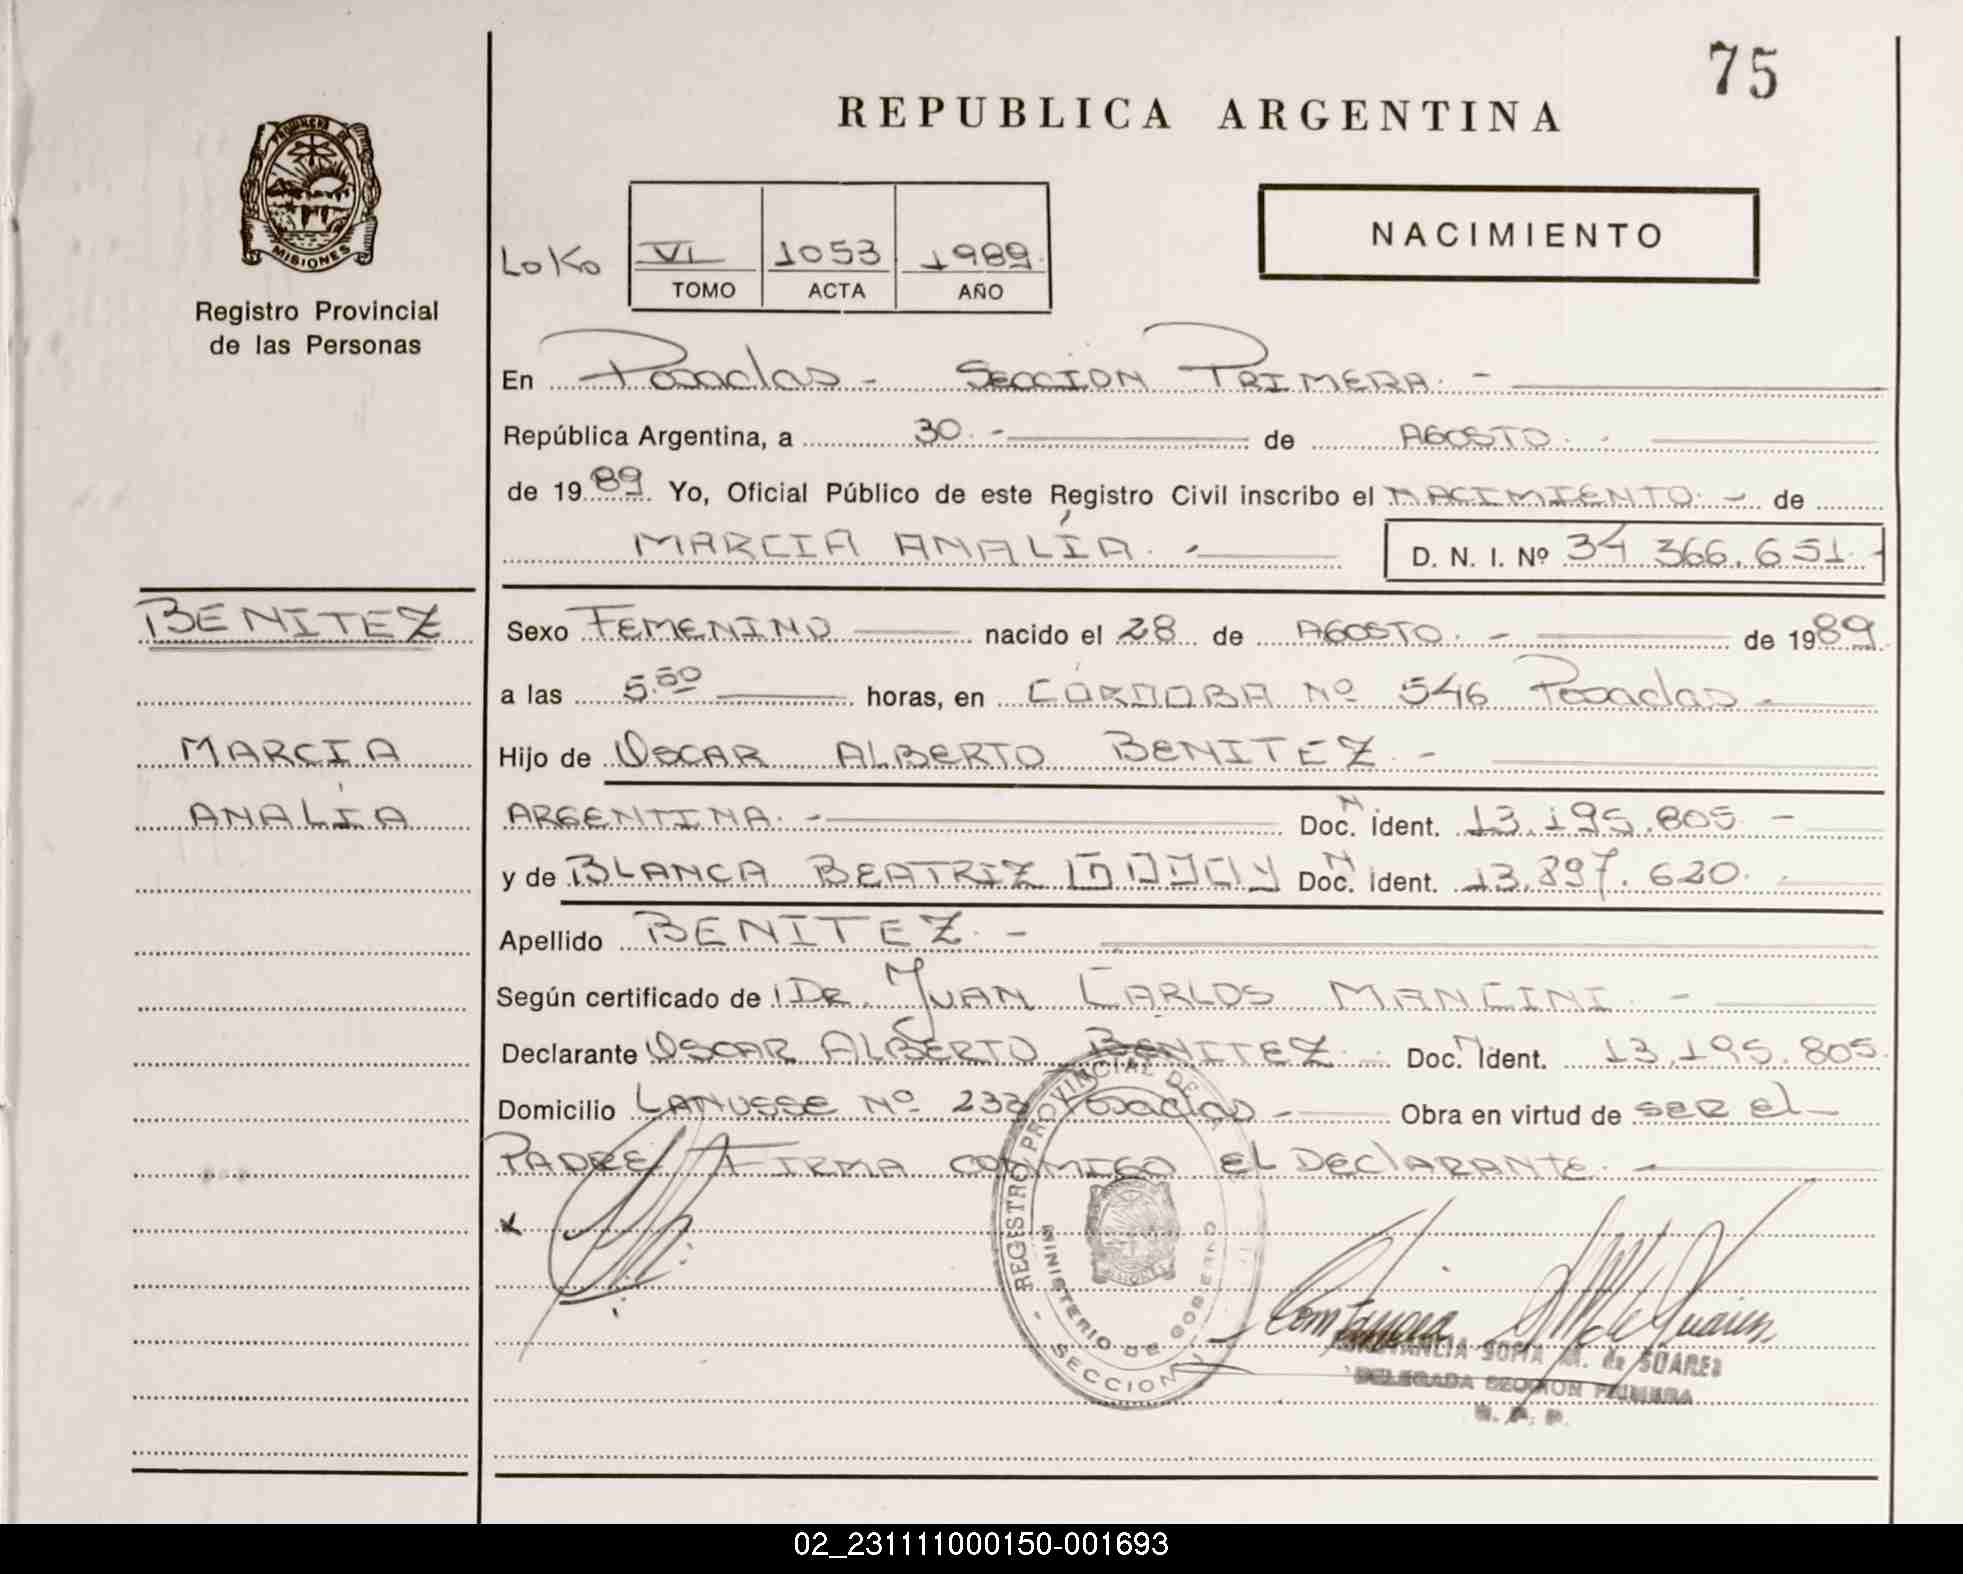 75
REPUBLICA ARGENTINA
PROVINCIA DE
MISIONES
Registro Provincial
de las Personas
LoKo
VI 1053 1989.
TOMO ACTA AÑO
NACIMIENTO
En Posadas - SECCION PRIMERA. -
República Argentina, a 30. - de AGOSTO. -
de 1989. Yo, Oficial Público de este Registro Civil inscribo el NACIMIENTO. - de
MARCIA ANALÍA. - D. N. I. Nº 34 366.651. -
BENITEZ
MARCIA
ANALÍA
Sexo FEMENINO nacido el 28 de AGOSTO. - de 1989.
a las 5.50 horas, en CÓRDOBA Nº 546 Posadas -
Hijo de OSCAR ALBERTO BENITEZ. -
ARGENTINA. - Doc. N. Ident. 13.195.805 -
y de BLANCA BEATRIZ Doc. N Ident. 13.897.620. -
Apellido BENITEZ. -
Según certificado de DR. JUAN CARLOS MANCINI. -
Declarante OSCAR ALBERTO BENITEZ. Doc. N Ident. 13.195.805.
Domicilio LANUSSE Nº 233 Posadas - Obra en virtud de SER el
PADRE FIRMA CONMIGO EL DECLARANTE. -
x
REGISTRO PROVINCIAL DE
MINISTERIO DE GOBIERNO
- SECCION
CONSTANCIA SOFIA M. de SUAREZ
DELEGADA SECCION PRIMERA
R. P. P.
02_231111000150-001693